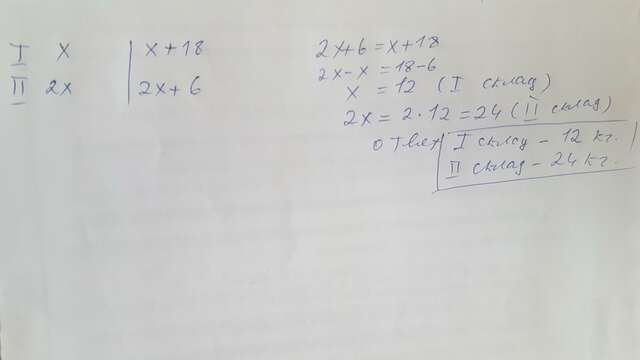 I x | x+18
II 2x | 2x+6
2x+6 = x+18
2x-x = 18-6
x = 12 (I склад)
2x = 2·12 = 24 (II склад)
ответ I склад - 12 кг.
II склад - 24 кг.